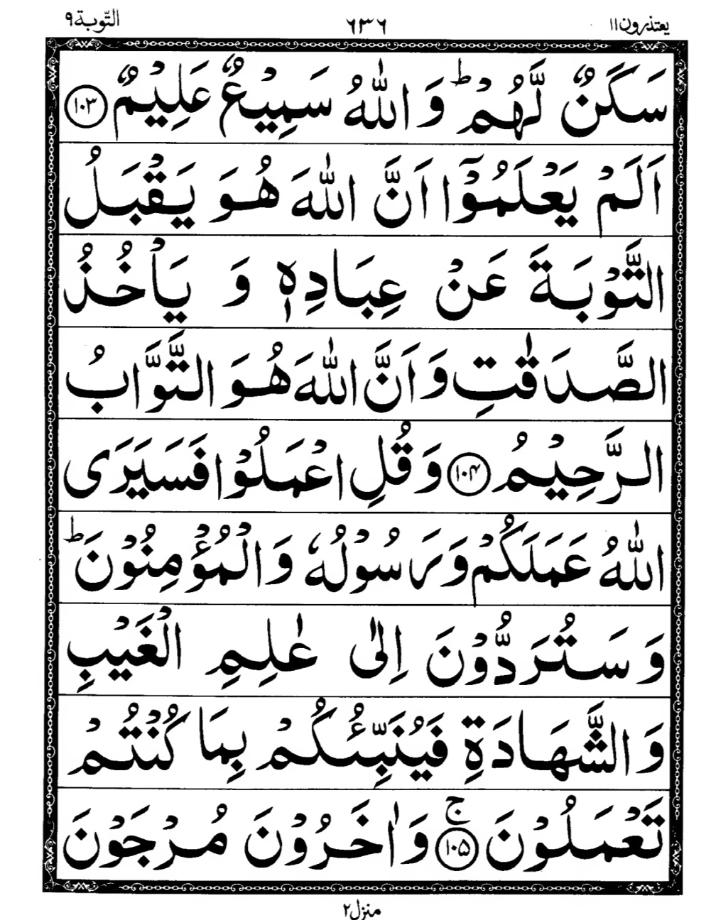 یعتذرون۱۱ ۶۳۶ التّوبة۹
سَكَنٌ لَّهُمْ ؕ وَ اللّٰهُ سَمِیْعٌ عَلِیْمٌ ﴿۱۰۳﴾
اَلَمْ یَعْلَمُوْۤا اَنَّ اللّٰهَ هُوَ یَقْبَلُ
التَّوْبَةَ عَنْ عِبَادِهٖ وَ یَاْخُذُ
الصَّدَقٰتِ وَ اَنَّ اللّٰهَ هُوَ التَّوَّابُ
الرَّحِیْمُ ﴿۱۰۴﴾ وَ قُلِ اعْمَلُوْا فَسَیَرَی
اللّٰهُ عَمَلَكُمْ وَ رَسُوْلُهٗ وَ الْمُؤْمِنُوْنَ ؕ
وَ سَتُرَدُّوْنَ اِلٰی عٰلِمِ الْغَیْبِ
وَ الشَّهَادَةِ فَیُنَبِّئُكُمْ بِمَا كُنْتُمْ
تَعْمَلُوْنَ ﴿۱۰۵﴾ ۚ وَ اٰخَرُوْنَ مُرْجَوْنَ
منزل۲